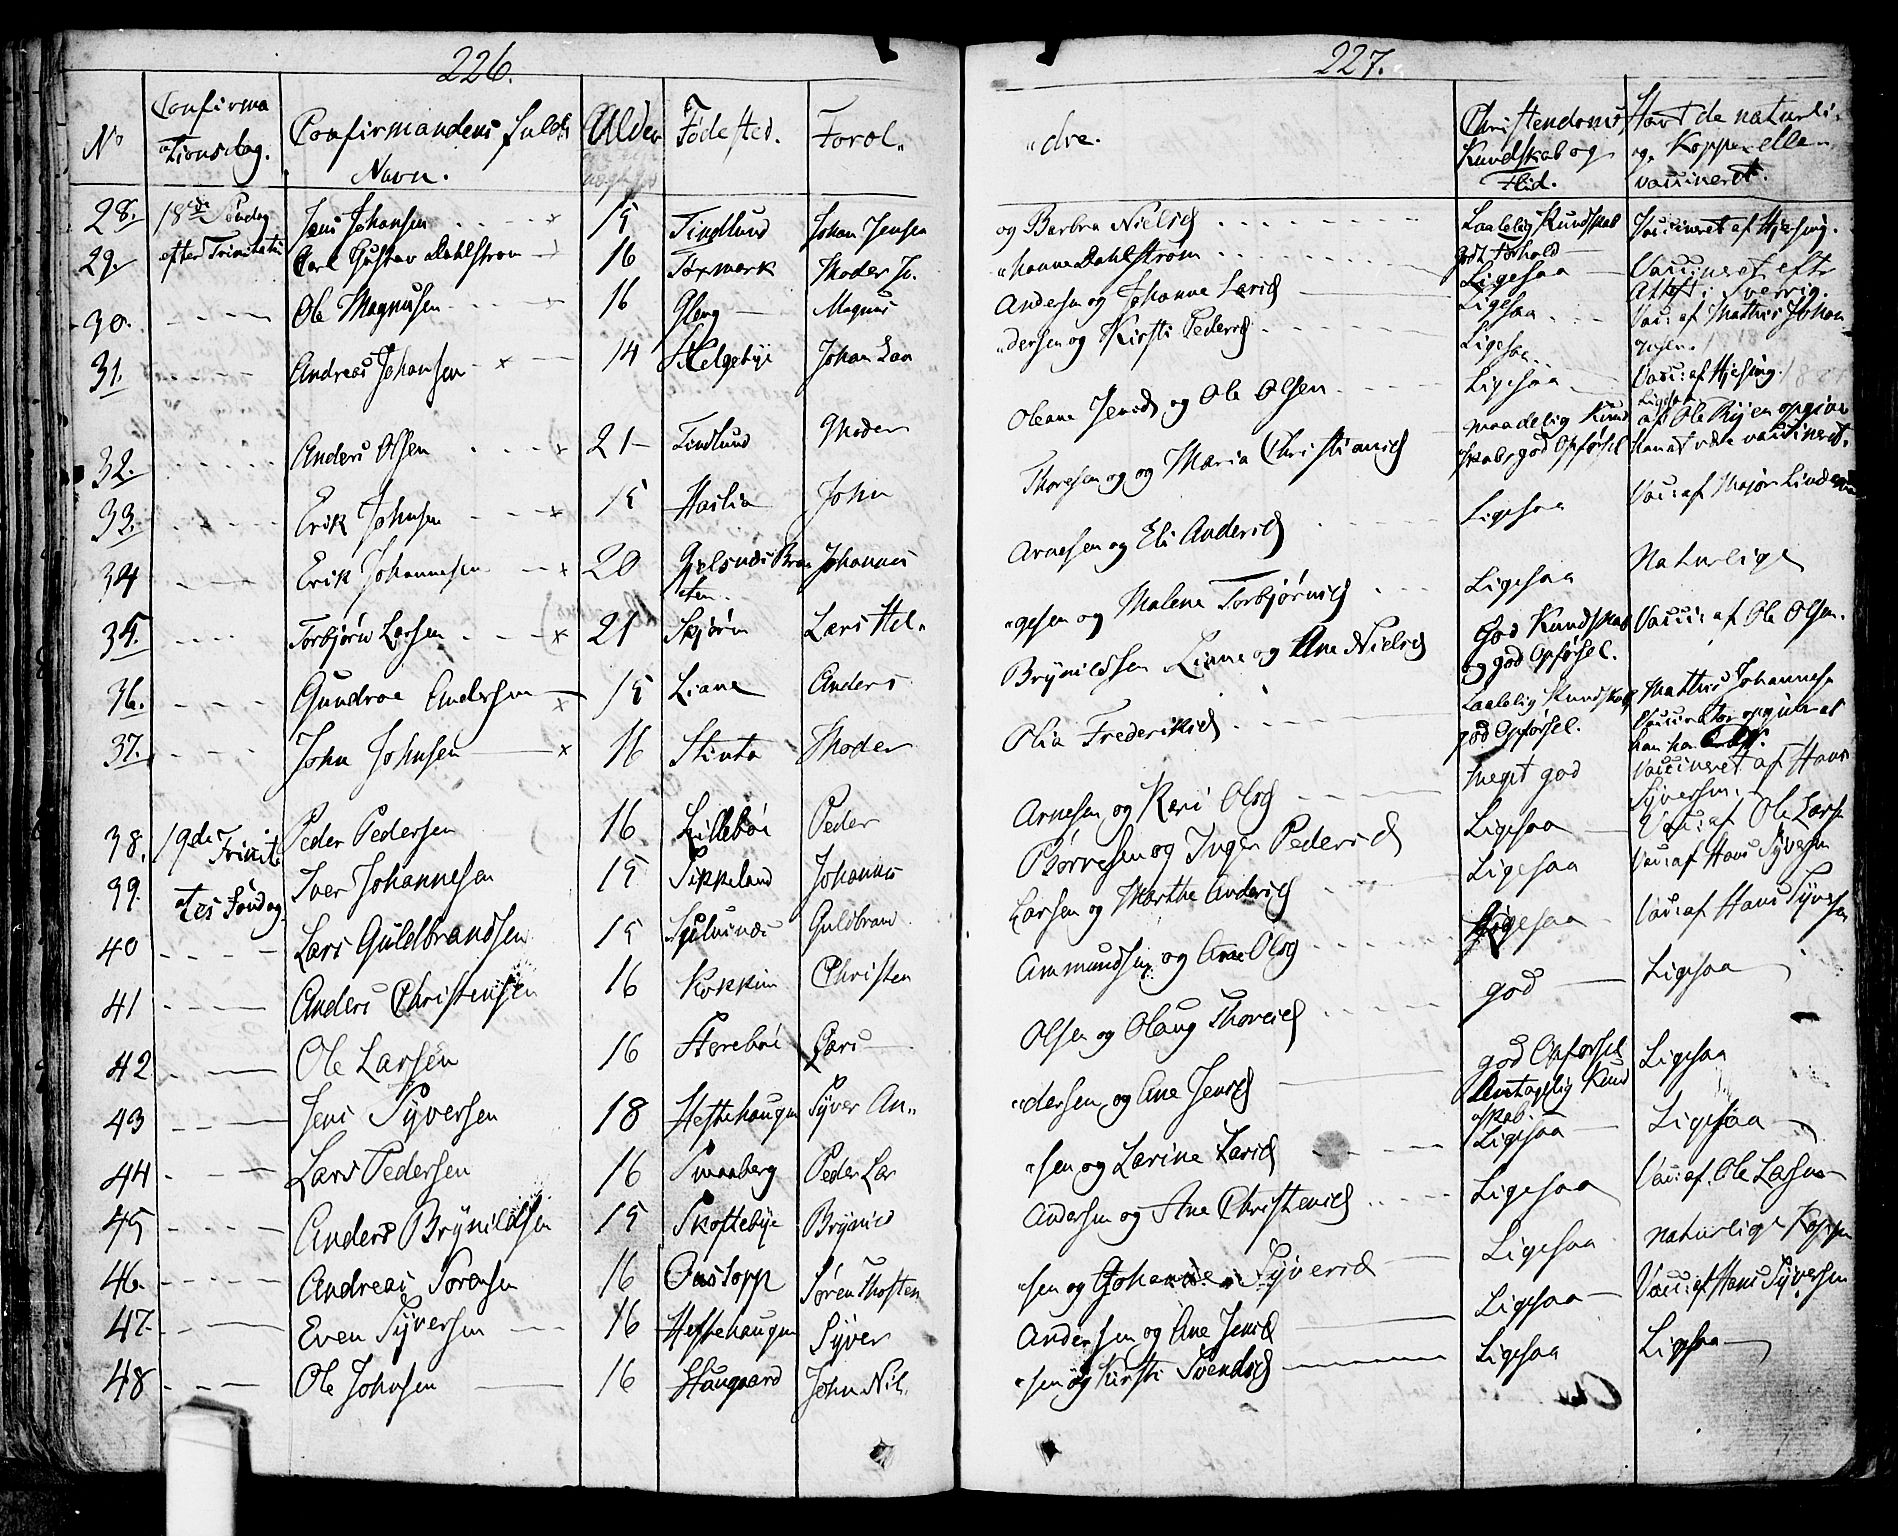 226.
227.
No
Confirma
tionsdag.
Confirmandens fulde
Navn.
Alder
Fødested.
Forel„
„dre.
Christendoms
Kundskab og
Flid.
Havt de naturli„
ge Kopper eller
vaccineret.
28. 18de Søndag Jens Johansen 15 Tindlund Johan Jensen og Barbra Nielsd Laalelig Kundskab Vaccineret af Hjesing.
god Forhold
29. efter Trinitatis Carl Gustav Dahlstrøm 16 Torsmark Moder Jo. „hanne Dahlstrøm Ligesaa Vaccineret eft
Attest i Sverrig.
30. Ole Magnusen 16 Gleng Magnus Andersen og Johanne Larsd Ligesaa Vacc: af Mathis Johan
31. Andreas Johansen 14 Helgebye Johan „dersen og Kirsti Pedersd Ligesaa Vacc: af Hjesing.
32. Anders Olsen 21 Tindlund Moder Oleane Jensd og Ole Olsen Ligesaa
33. Erik Johnsen 15 Haslia John Thoresen og og Maria Christiansd maadelig Kund
skab, god Opførsel
af Ole Byen opgive
han at være vaccineret.
34 Erik Johannesen 20 Johannes Arnesen og Eli Andersd Ligesaa Vacc: af Major
35. Torbjørn Larsen 21 Skjørn Lars Hel„ „gesen og Malene Torbjørnsd Ligesaa Naturlige
36. Gundroe Andersen 15 Liane Anders Brynildssen Liane og Ane Nielsd God Kundskab Vacc: af Ole Olsen.
og god Opførsel.
37. John Johnsen 16 Stinta Moder Olia Frederiksd Laalelig Kundskab Mathis Johannes
god Opførsel.
38. 19de Trinit Peder Pedersen 16 Lillebøe Peder Arnesen og Kari Olsd meget god Vaccineret af Hans
Syversen.
39. atis Søndag Iver Johannesen 15 Sikkeland Johannes Børresen og Inger Pedersd Ligesaa Vacc: af Ole Larse
40 Lars Guldbrandsen 15 Guldbrand Larsen og Marthe Andersd Ligesaa Vacc: af Hans Syversen
41 Anders Christensen 16 Kokkim Christen Ammundsen og Ane Olsd Ligesaa Vacc: af Hans Syversen
42 Ole Larsen 16 Storebøe Lars Olsen og Olaug Thoresd god Ligesaa
43 Jens Syversen 18 Hestehaugen Syver An„ „dersen og Ane Jensd god Opførsel Ligesaa
Antagelig Kund
skab
44 Lars Pedersen 16 Smaaberg Peder Lar „sen og Larine Larsd Ligesaa Ligesaa
45 Anders Brynildsen 15 Skoftebye Brynild Andersen og Ane Christensd Ligesaa Vacc: af Ole Larsen
46. Andreas Sørensen 16 Søren Thosten „sen og Johanne Syversd Ligesaa naturlige Kopper
47. Even Syversen 16 Hestehaugen Syver Andersen og Ane Jensd Ligesaa Vacc: af Hans Syversen
48 Ole Johnsen 16 Haugaard John Nil. „sen og Kirsti Svendsd Ligesaa Ligesaa